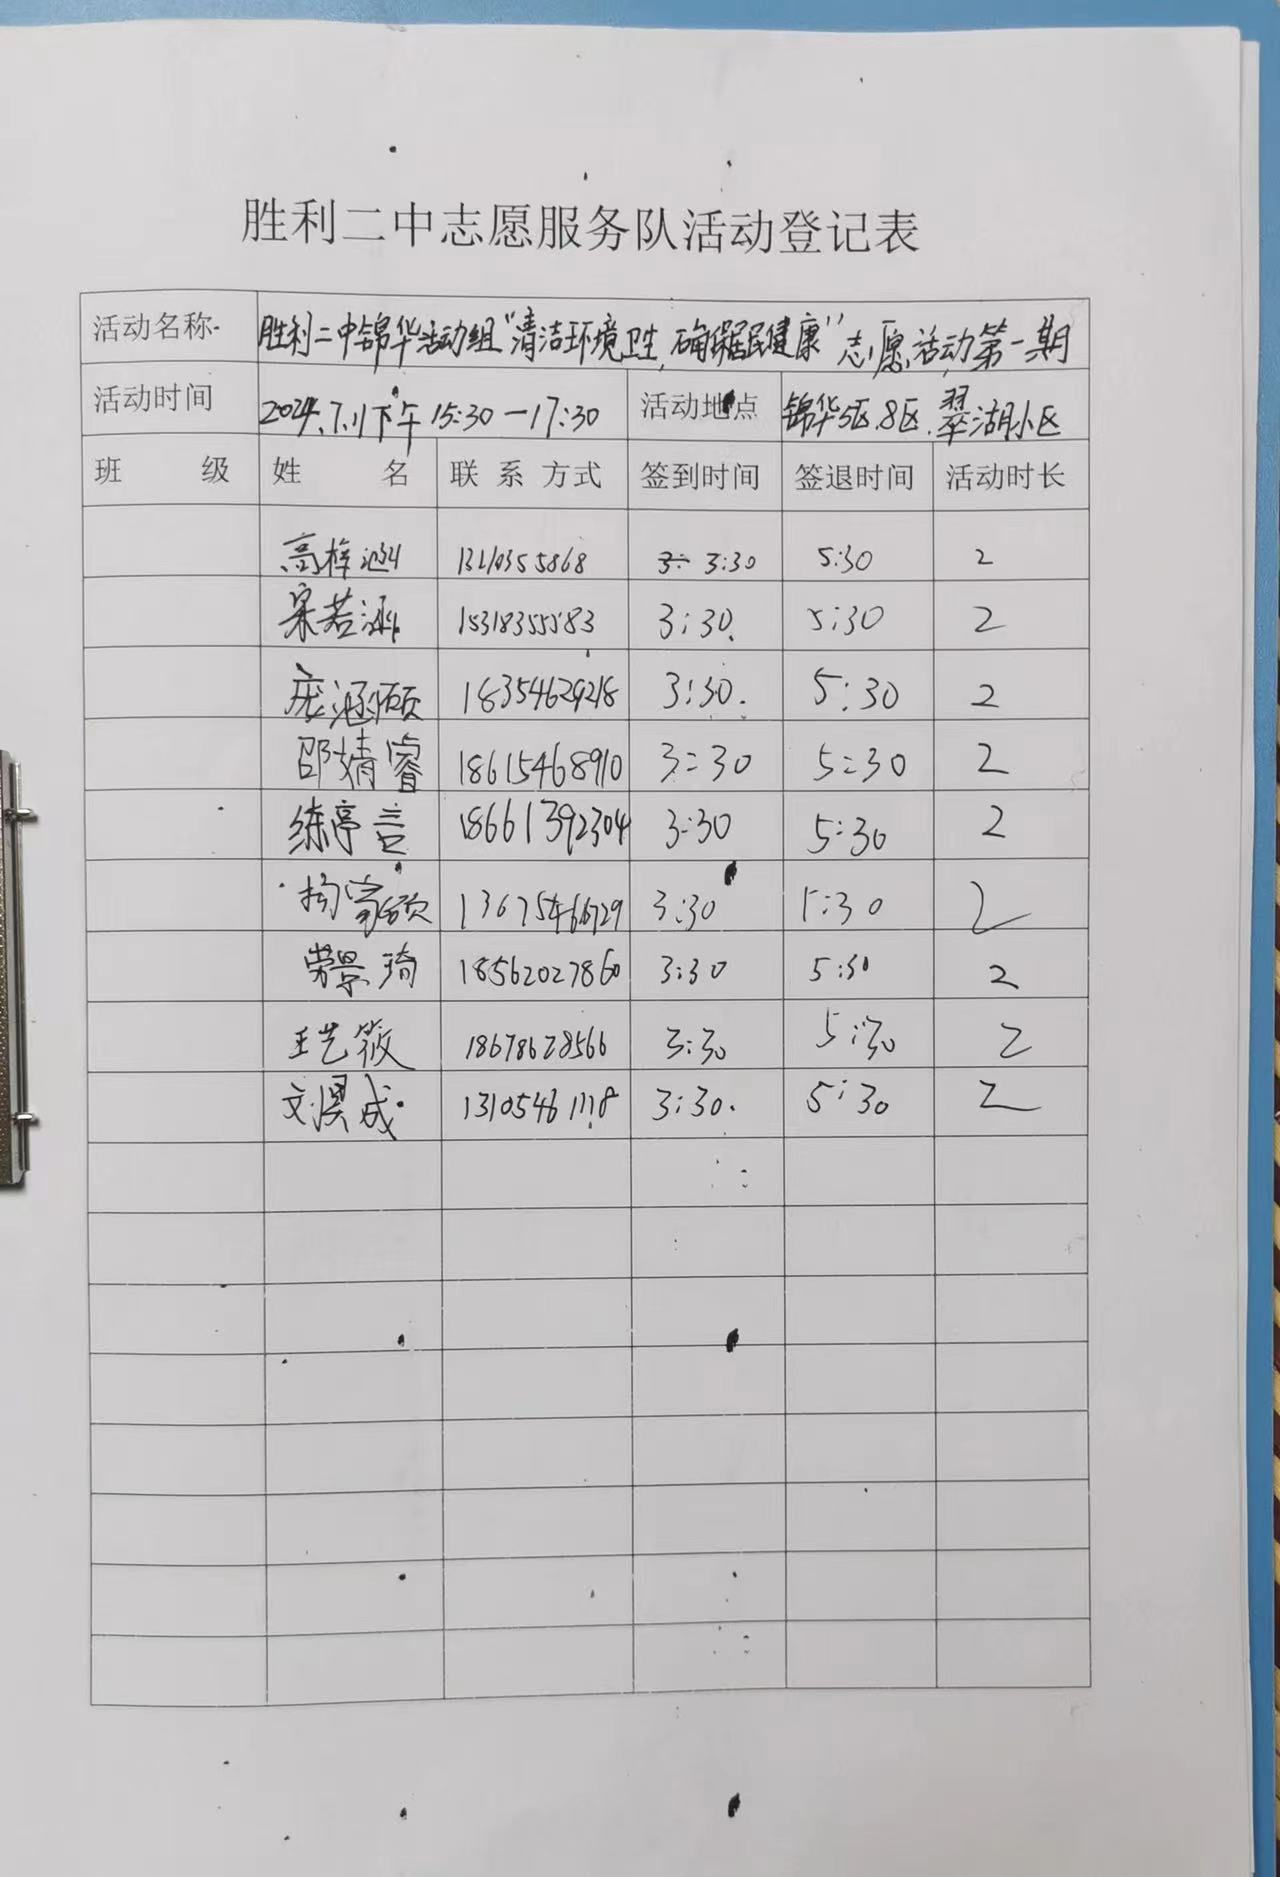 胜利二中志愿服务队活动登记表
活动名称 胜利二中锦华活动组“清洁环境卫生,确保居民健康”志愿活动第一期
活动时间 2024.7.1下午15:30—17:30 活动地点 锦华5区.8区.翠湖小区
班级 姓名 联系方式 签到时间 签退时间 活动时长
高梓涵 3:30 5:30 2
宋若涵 15318355583 3:30 5:30 2
庞涵硕 18354629218 3:30 5:30 2
邵婧睿 18615468910 3:30 5:30 2
练亭言 18661392304 3:30 5:30 2
杨 13675466729 3:30 5:30 2
劳景琦 18562027860 3:30 5:30 2
王艺筱 18678628566 3:30 5:30 2
刘昊成 3:30 5:30 2